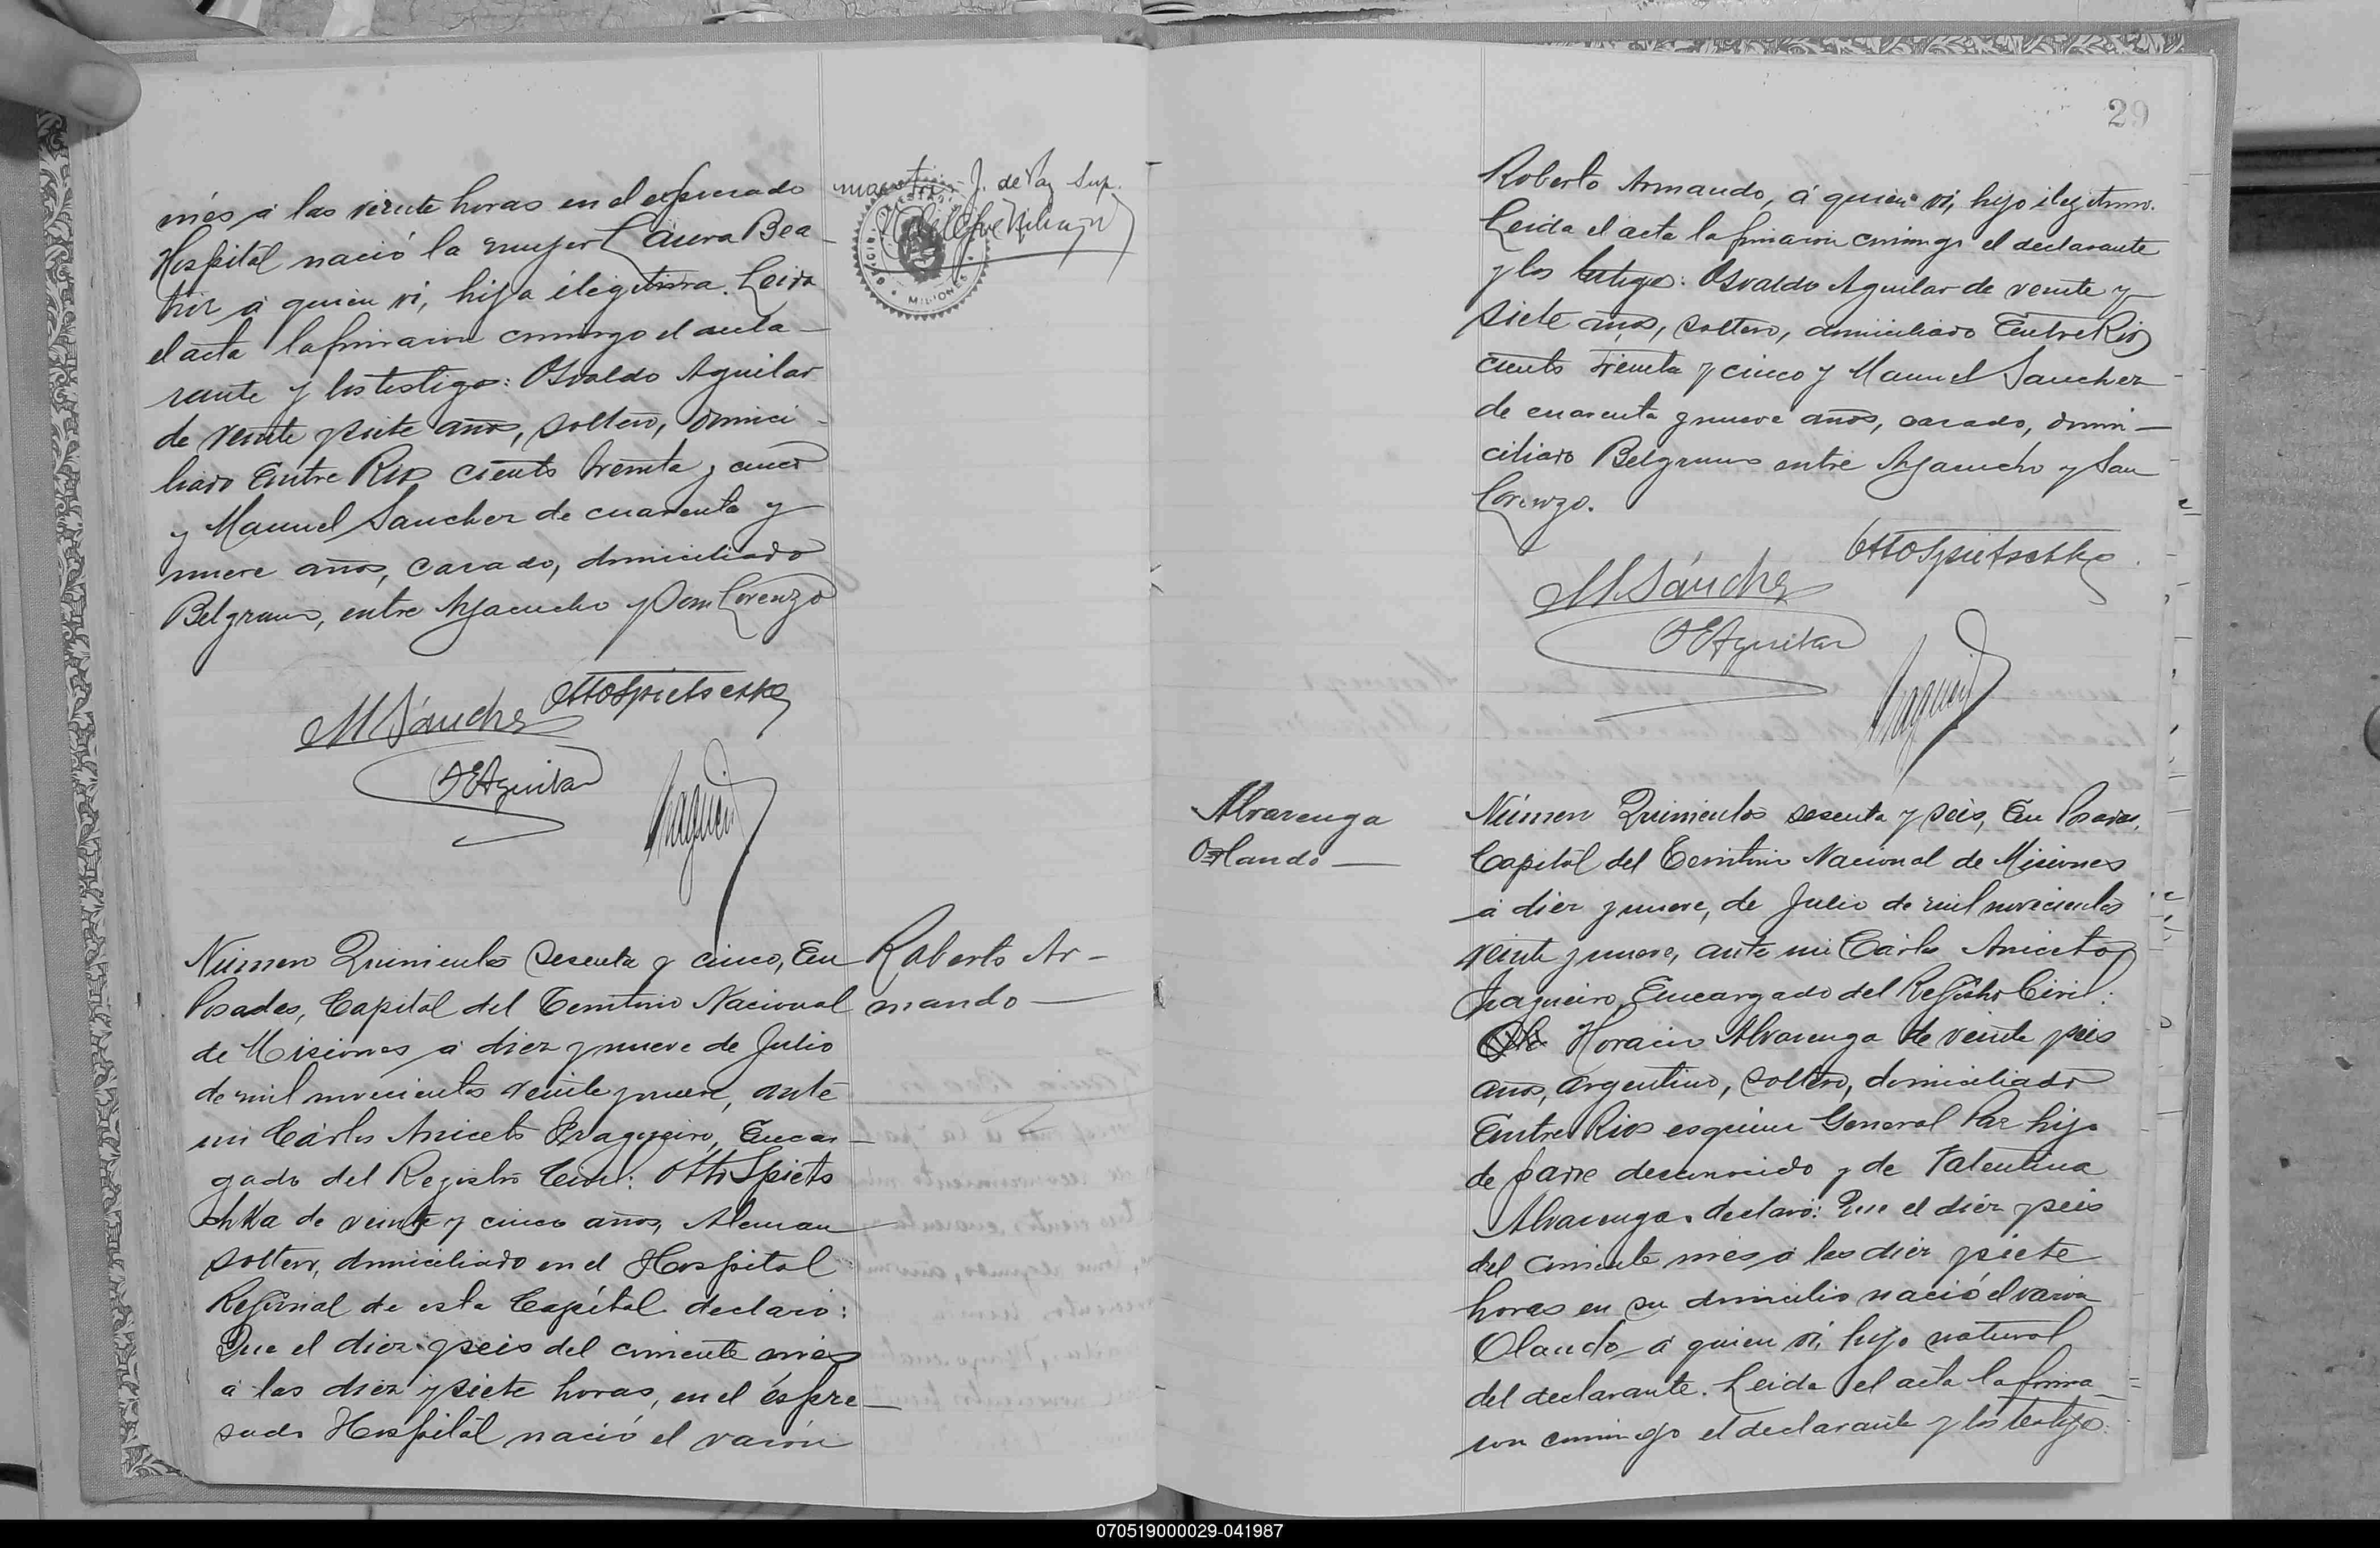 més á las veinte horas en el espresado
Hospital nació la mujer Laura Bea
triz á quien ví, hija ilegitima. Leida
el acta la firmaron conmigo el decla-
rante y los testigos: Osvaldo Aguilar
de veinte y siete años, soltero, domici-
liado Entre Rios ciento treinta y cinco
y Manuel Sanchez de cuarenta y
nueve años, casado, domiciliado
Belgrano, entre Ayacucho y San Lorenzo
Otto Spietschka
M Sánchez
O E Aguilar
J. de Paz Sup.
MISIONES
Número Quinientos sesenta y cinco, En
Posadas, Capital del Territorio Nacional
de Misiones á diez y nueve de Julio
de mil novecientos veinte y nueve, ante
mi Cárlos Aniceto Fragueiro, Encar-
gado del Registro Civil: Otto Spiets
chka de veinte y cinco años, Aleman
soltero, domiciliado en el Hospital
Regional de esta Capital declaró:
Que el diez y seis del corriente més
á las diez y siete horas, en el espre-
sado Hospital nació el varón
Roberto Ar-
mando
29
Roberto Armando, á quien ví, hijo ilegitimo.
Leida el acta la firmaron conmigo el declarante
y los testigos: Osvaldo Aguilar de veinte y
siete años, soltero, domiciliado Entre Rios
ciento treinta y cinco y Manuel Sanchez
de cuarenta y nueve años, casado, domi-
ciliado Belgrano entre Ayacucho y San
Lorenzo.
Otto Spietschka
M Sánchez
O E Aguilar
Alvarenga
Orlando
Número Quinientos sesenta y seis, En Posadas,
Capital del Territorio Nacional de Misiones
á diez y nueve, de Julio de mil novecientos
veinte y nueve, ante mi Cárlos Aniceto
Fragueiro, Encargado del Registro Civil:
Horacio Alvarenga de veinte y seis
años, argentino, soltero, domiciliado
Entre Rios esquina General Paz hijo
de padre desconocido y de Valentina
Alvarenga, declaró: Que el diez y seis
del corriente més á las diez y siete
horas en su domicilio nació el varón
Olando á quien ví, hijo natural
del declarante. Leida el acta la firma-
ron conmigo el declarante y los testigos:
070519000029-041987